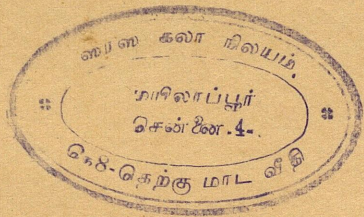 ஸரஸ கலா நிலயம்,
மயிலாப்பூர்
சென்னை.4-.
தெற்கு மாட வீதி